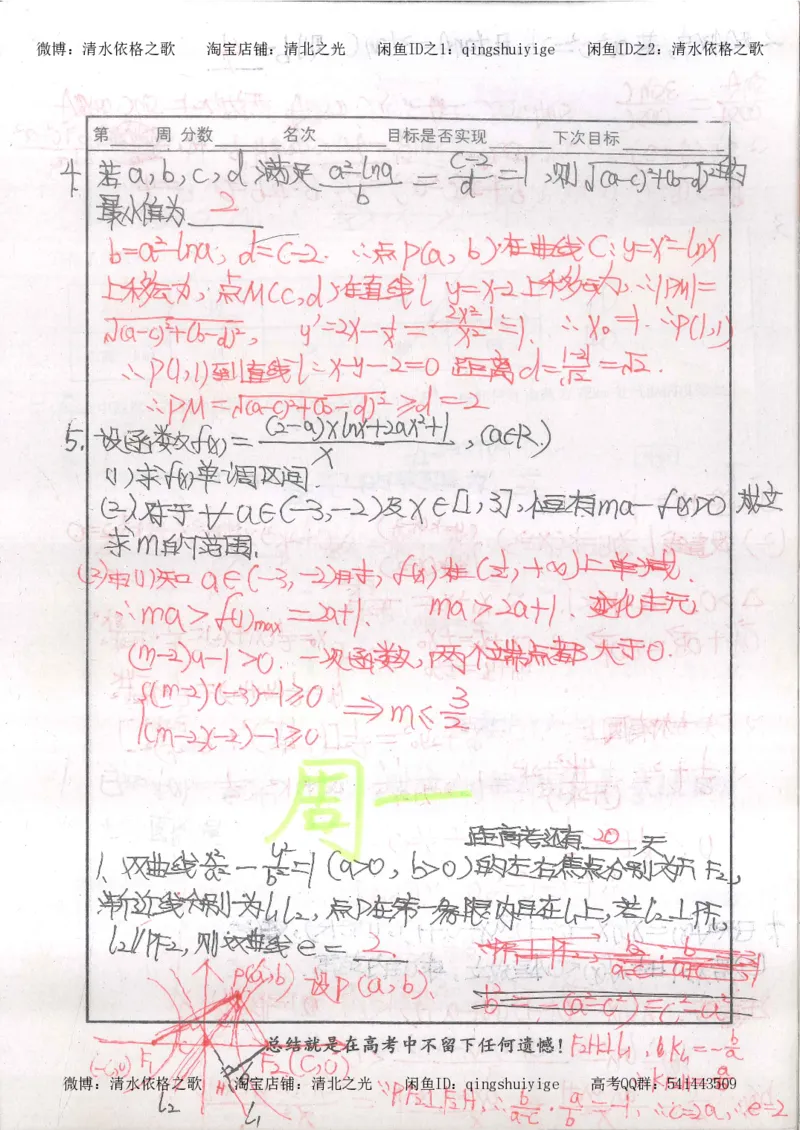 微博：清水依格之歌 淘宝店铺：清北之光 闲鱼ID之1：qingshuiyige 闲鱼ID之2：清水依格之歌
第 周 分数 名次 目标是否实现 下次目标
4. 若a,b,c,d满足 (a²-lna)/b = (c-2)/d = 1,则√((a-c)²+(b-d)²)的
最小值为 2
b=a²-lna, d=c-2. ∴点P(a,b)在曲线C:y=x²-lnx
上移动,点M(c,d)在直线l y=x-2上移动,∴|PM|=
√((a-c)²+(b-d)², y'=2x-1/x=(2x²-1)/x²=1. ∴x₀=1.∴P(1,1)
∴P(1,1)到直线l=x-y-2=0 距离d=|1-2|/√2=√2.
∴PM=√((a-c)²+(b-d)²≥d=2
5. 设函数f(x)=((2-a)xlnx+2ax²+1)/x,(a∈R.)
(1)求f(x)单调区间
(2)对于∀a∈(-3,-2)及x∈[1,3],恒有ma-f(x)>0 成立
求m的范围.
(3)由(1)知a∈(-3,-2)时,f(x)在(½,+∞)上单减.
∴ma>f(1)max=2a+1. ma>2a+1. 变化主元
(m-2)a-1>0. 一次函数,两个端点都大于0.
{(m-2)(-3)-1≥0
(m-2)(-2)-1≥0 ⇒m≤3/2
周一
距高考还有 20 天
1. 双曲线x²/a²-y²/b²=1(a>0,b>0)的左右焦点分别为F₁ F₂,
渐近线分别为l₁l₂,点P在第一象限内且在l₁上,若l₂⊥PF₁
l₂//PF₂,则双曲线e= 2.
P(a,b) 设P(a,b).
(-c,0) F₁ F₂(c,0) H
总结就是在高考中不留下任何遗憾！
F₂H⊥l₁,
微博：清水依格之歌 淘宝店铺：清北之光 闲鱼ID：qingshuiyige 高考QQ群：541443509
l₂ l₁ ∵PF₂⊥F₂H,∴b/(a-c)·a/b=-1,∴c=2a,∴e=2